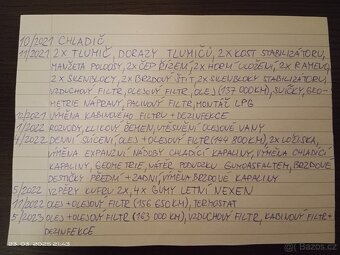 10/2021 CHLADIČ
11/2021 2X TLUMIČ, DORAZY TLUMIČŮ, 2X KOST STABILIZÁTORU,
MANŽETA POLOOSY, 2X ČEP ŘÍZENÍ, 2X HORNÍ ULOŽENÍ, 2X RAMENO
2X SILENBLOKY, 2X BRZDOVÝ ŠTÍT, 2X SILENBLOKY STABILIZÁTORU,
VZDUCHOVÝ FILTR, OLEJOVÝ FILTR, OLEJ (137 000 KM), SVÍČKY, GEO-
METRIE NÁPRAVY, PALIVOVÝ FILTR, MONTÁŽ LPG
12/2021 VÝMĚNA KABINOVÉHO FILTRU + DEZINFEKCE
1/2022 ROZVODY, KLÍNOVÝ ŘEMEN, UTĚSNĚNÍ OLEJOVÉ VANY
4/2022 DENNÍ SVÍCENÍ, OLEJ + OLEJOVÝ FILTR (144 800 KM), 2X LOŽISKA,
VÝMĚNA EXPANZNÍ NÁDOBY CHLADÍCÍ KAPALINY, VÝMĚNA CHLADÍCÍ
KAPALINY, GEOMETRIE, NÁTĚR PODVOZKU GUMOASFALTEM, BRZDOVÉ
DESTIČKY PŘEDNÍ + ZADNÍ, VÝMĚNA BRZDOVÉ KAPALINY
5/2022 VZPĚRY KUFRU 2X, 4X GUMY LETNÍ NEXEN
11/2022 OLEJ + OLEJOVÝ FILTR (156 650 KM), TERMOSTAT
5/2023 OLEJ + OLEJOVÝ FILTR (163 000 KM), VZDUCHOVÝ FILTR, KABINOVÝ FILTR +
DEZINFEKCE
23.03.2025 21:43
Bazoš.cz